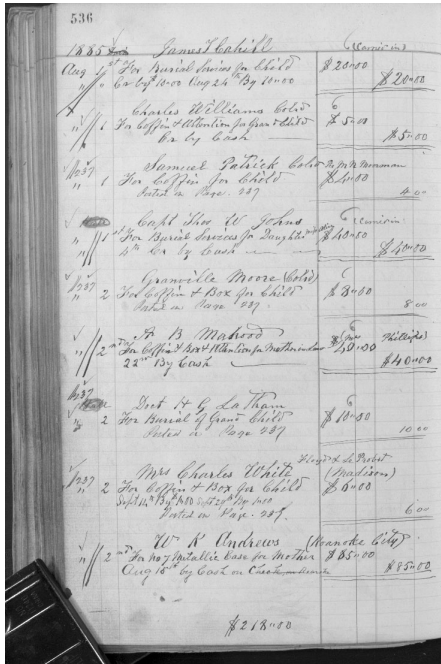 536
1885 James T Cahill
Aug 1st For Burial Services for Child $20.00
" " Cr by 10.00 Aug 24th By 10.00 $20.00
Charles Williams Cold
" 1 For Coffin & Attention for Grand Child $5.00
Cr by Cash $5.00
Samuel Patrick Cold
" 1 For Coffin for Child $4.00
Posted in Page 237 4 00
Capt Thos W Johns
" 1st For Burial Services for Daughter $40.00
4th Cr by Cash $40.00
Granville Moore (Cold)
" 2 For Coffin & Box for Child $8.00
Posted in Page 237 8 00
A B Mahood Phillips
" 2nd For Coffin & Box & Attention for Mother in law $40.00
22nd By Cash $40.00
Doct H G La Tham
" 2 For Burial of Grand Child $10.00
Posted in Page 237 10 00
Mrs Charles White (Madison)
237 " 2 For Coffin & Box for Child $6.00
Posted in Page 237 6 00
W K Andrews (Roanoke City)
" 2nd For No 7 Metallic Case for Mother $85.00
Aug 15th by Cash on $85.00
$218.00